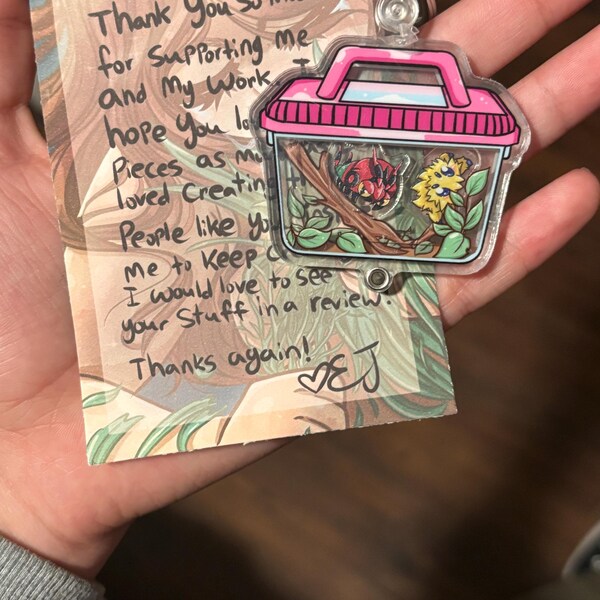 Thank You so
for Supporting me
and My Work I
hope You
Pieces as
loved Creatin
People like Yo
me to Keep
I would love to see
your Stuff in a review!
Thanks again!